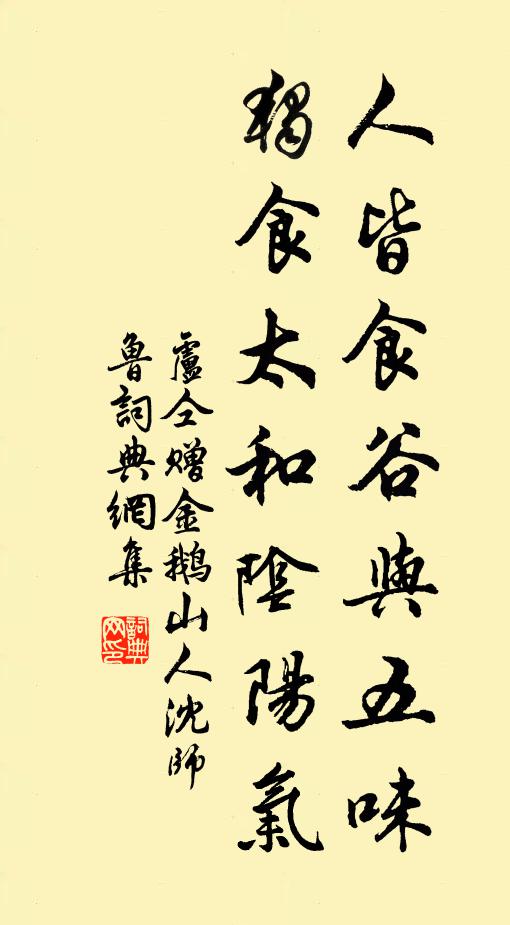 人皆食谷與五味
獨食太和陰陽氣
盧仝贈金鵝山人沈師
魯詞典網集
詞典網印